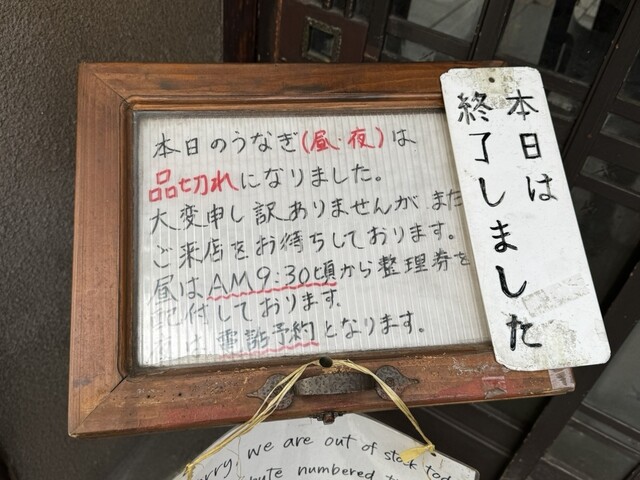 本日のうなぎ(昼・夜)は
品切れになりました。
大変申し訳ありませんがまた
ご来店をお待ちしております。
昼はAM9:30頃から整理券を
配付しております。
電話予約となります。
本日は
終了しました
we are out of stock
numbered